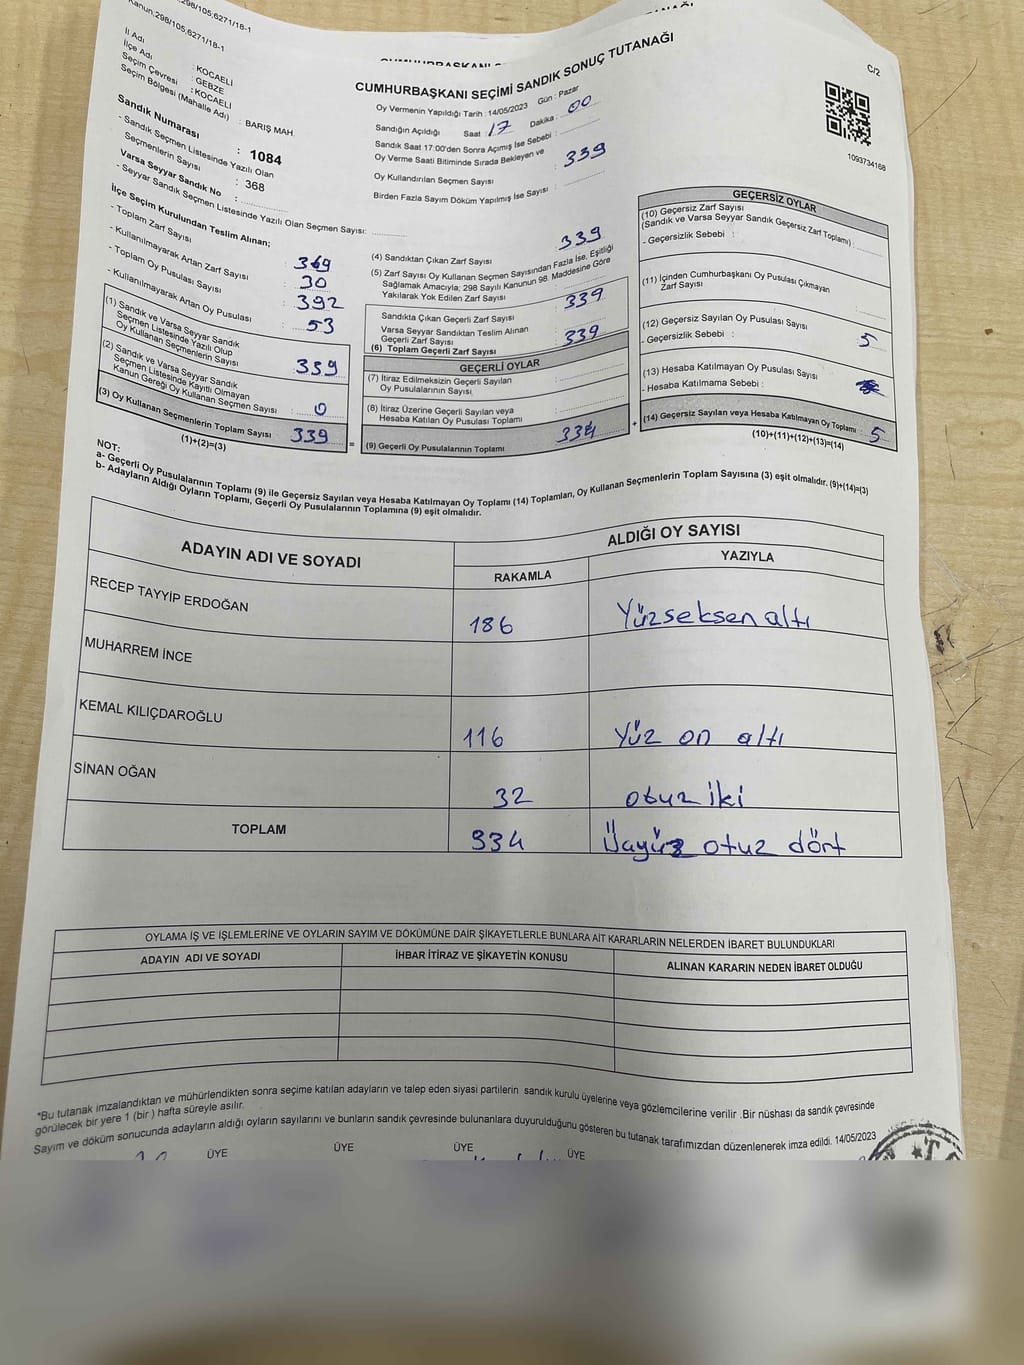 298/105,6271/18-1
Kanun:298/105,6271/18-1
C/2
CUMHURBAŞKANI SEÇİMİ SANDIK SONUÇ TUTANAĞI
İl Adı : KOCAELİ
İlçe Adı : GEBZE
Seçim Çevresi : KOCAELİ
Seçim Bölgesi (Mahalle Adı) : BARIŞ MAH.
Sandık Numarası : 1084
- Sandık Seçmen Listesinde Yazılı Olan
Seçmenlerin Sayısı : 368
Varsa Seyyar Sandık No :
- Seyyar Sandık Seçmen Listesinde Yazılı Olan Seçmen Sayısı:
İlçe Seçim Kurulundan Teslim Alınan;
- Toplam Zarf Sayısı : 369
- Kullanılmayarak Artan Zarf Sayısı : 30
- Toplam Oy Pusulası Sayısı : 392
- Kullanılmayarak Artan Oy Pusulası : 53
(1) Sandık ve Varsa Seyyar Sandık
Seçmen Listesinde Yazılı Olup
Oy Kullanan Seçmenlerin Sayısı : 339
(2) Sandık ve Varsa Seyyar Sandık
Seçmen Listesinde Kayıtlı Olmayan
Kanun Gereği Oy Kullanan Seçmen Sayısı : 0
(3) Oy Kullanan Seçmenlerin Toplam Sayısı 339
(1)+(2)=(3)
Oy Vermenin Yapıldığı Tarih : 14/05/2023 Gün : Pazar
Sandığın Açıldığı Saat : 17 Dakika : 00
Sandık Saat 17:00'den Sonra Açımış İse Sebebi :
Oy Verme Saati Bitiminde Sırada Bekleyen ve
Oy Kullandırılan Seçmen Sayısı : 339
Birden Fazla Sayım Döküm Yapılmış İse Sayısı :
(4) Sandıktan Çıkan Zarf Sayısı 339
(5) Zarf Sayısı Oy Kullanan Seçmen Sayısından Fazla İse, Eşitliği
Sağlamak Amacıyla; 298 Sayılı Kanunun 98. Maddesine Göre
Yakılarak Yok Edilen Zarf Sayısı
Sandıkta Çıkan Geçerli Zarf Sayısı 339
Varsa Seyyar Sandıktan Teslim Alınan
Geçerli Zarf Sayısı
(6) Toplam Geçerli Zarf Sayısı 339
GEÇERLİ OYLAR
(7) İtiraz Edilmeksizin Geçerli Sayılan
Oy Pusulalarının Sayısı
(8) İtiraz Üzerine Geçerli Sayılan veya
Hesaba Katılan Oy Pusulası Toplamı
= (9) Geçerli Oy Pusulalarının Toplamı 334 +
1093734168
GEÇERSİZ OYLAR
(10) Geçersiz Zarf Sayısı
(Sandık ve Varsa Seyyar Sandık Geçersiz Zarf Toplamı) :
- Geçersizlik Sebebi :
(11) İçinden Cumhurbaşkanı Oy Pusulası Çıkmayan
Zarf Sayısı
(12) Geçersiz Sayılan Oy Pusulası Sayısı 5
- Geçersizlik Sebebi :
(13) Hesaba Katılmayan Oy Pusulası Sayısı
- Hesaba Katılmama Sebebi :
(14) Geçersiz Sayılan veya Hesaba Katılmayan Oy Toplamı 5
(10)+(11)+(12)+(13)=(14)
NOT:
a- Geçerli Oy Pusulalarının Toplamı (9) ile Geçersiz Sayılan veya Hesaba Katılmayan Oy Toplamı (14) Toplamları, Oy Kullanan Seçmenlerin Toplam Sayısına (3) eşit olmalıdır. (9)+(14)=(3)
b- Adayların Aldığı Oyların Toplamı, Geçerli Oy Pusulalarının Toplamına (9) eşit olmalıdır.
ADAYIN ADI VE SOYADI ALDIĞI OY SAYISI
RAKAMLA YAZIYLA
RECEP TAYYİP ERDOĞAN 186 Yüzseksen altı
MUHARREM İNCE
KEMAL KILIÇDAROĞLU 116 Yüz on altı
SİNAN OĞAN 32 otuz iki
TOPLAM 334 Üçyüz otuz dört
OYLAMA İŞ VE İŞLEMLERİNE VE OYLARIN SAYIM VE DÖKÜMÜNE DAİR ŞİKAYETLERLE BUNLARA AİT KARARLARIN NELERDEN İBARET BULUNDUKLARI
ADAYIN ADI VE SOYADI İHBAR İTİRAZ VE ŞİKAYETİN KONUSU ALINAN KARARIN NEDEN İBARET OLDUĞU
*Bu tutanak imzalandıktan ve mühürlendikten sonra seçime katılan adayların ve talep eden siyasi partilerin sandık kurulu üyelerine veya gözlemcilerine verilir .Bir nüshası da sandık çevresinde
görülecek bir yere 1 (bir ) hafta süreyle asılır.
Sayım ve döküm sonucunda adayların aldığı oyların sayılarını ve bunların sandık çevresinde bulunanlara duyurulduğunu gösteren bu tutanak tarafımızdan düzenlenerek imza edildi. 14/05/2023
ÜYE ÜYE ÜYE ÜYE